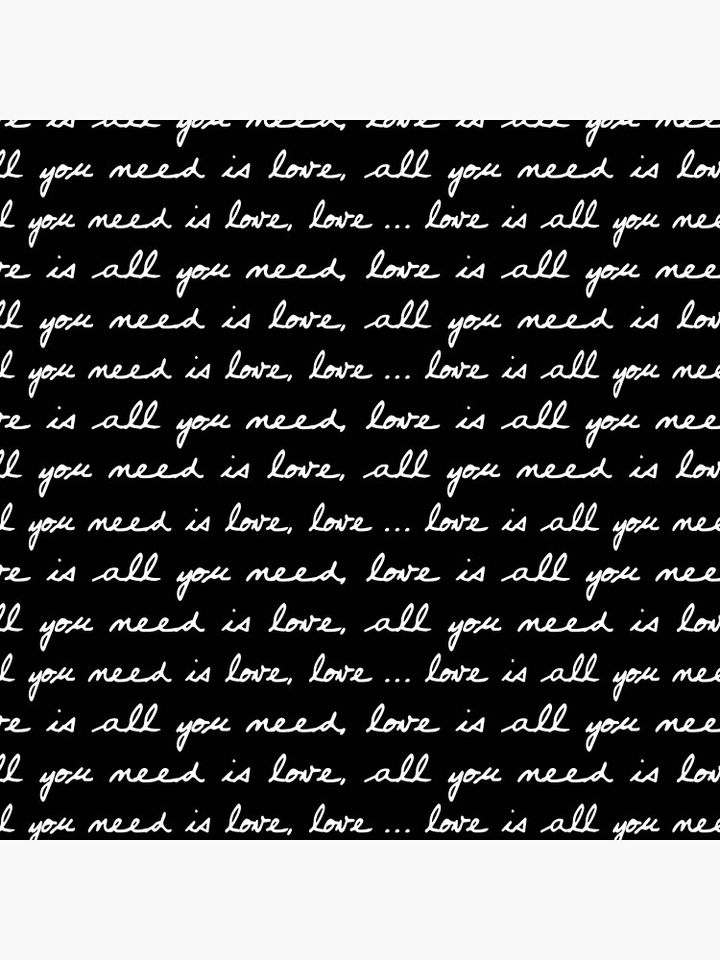 ve is all you need, love is all you nee
ll you need is love, all you need is lov
l you need is love, love ... love is all you nee
ve is all you need, love is all you nee
ll you need is love, all you need is lov
l you need is love, love ... love is all you nee
ve is all you need, love is all you nee
ll you need is love, all you need is lov
l you need is love, love ... love is all you nee
ve is all you need, love is all you nee
ll you need is love, all you need is lov
l you need is love, love ... love is all you nee
ve is all you need, love is all you nee
ll you need is love, all you need is lov
l you need is love, love ... love is all you nee